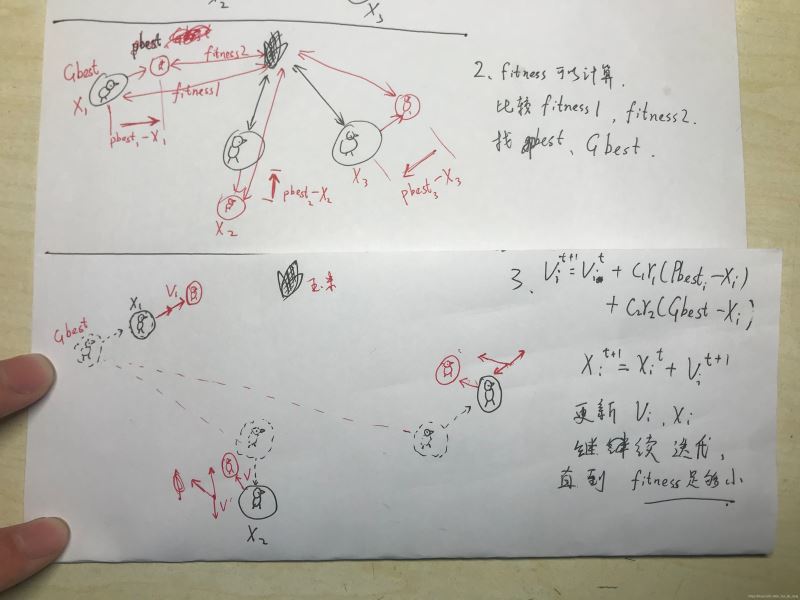 X2
X3
pbest
fitness2
Gbest
X1
fitness1
pbest1-X1
X3
pbest2-X2
pbest3-X3
X2
2、fitness 可以计算.
比较 fitness1, fitness2.
找 pbest、Gbest.
玉米
X1
Vi
Gbest
V
V'
X2
3. Vi^t+1=Vi^t + C1r1(Pbesti-Xi)
+ C2r2(Gbest-Xi)
Xi^t+1=Xi^t+Vi^t+1
更新 Vi, Xi
继续迭代,
直到 fitness足够小.